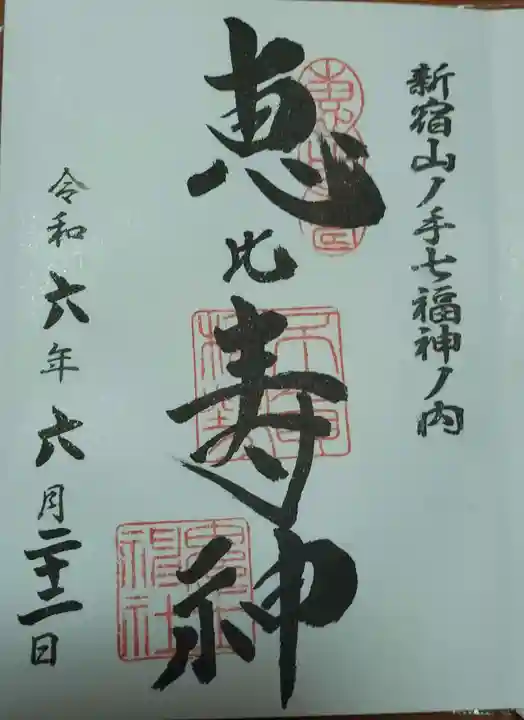 新宿山ノ手七福神ノ内
恵比寿神
令和六年六月二十二日